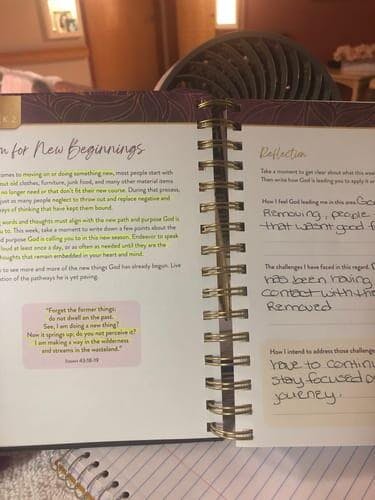 K 2
n for New Beginnings
comes to moving on or doing something new, most people start with
out old clothes, furniture, junk food, and many other material items
no longer need or that don't fit their new course. During that process,
just as many people neglect to throw out and replace negative and
ways of thinking that have kept them bound.
words and thoughts must align with the new path and purpose God is
u to. This week, take a moment to write down a few points about the
d purpose God is calling you to in this new season. Endeavor to speak
loud at least once a day, or as often as needed until they are the
thoughts that remain embedded in your heart and mind.
to see more and more of the new things God has already begun. Live
ation of the pathways he is yet paving.
"Forget the former things;
do not dwell on the past.
See, I am doing a new thing!
Now it springs up; do you not perceive it?
I am making a way in the wilderness
and streams in the wasteland."
Isaiah 43:18-19
Reflection
Take a moment to get clear about what this week
Then write how God is leading you to apply it
How I feel God leading me in this area:
Removing, people
that wasnt good f
The challenges I have faced in this regard:
has been having
contact with th
Removed
How I intend to address those challenge
have to continu
stay focused o
journey.